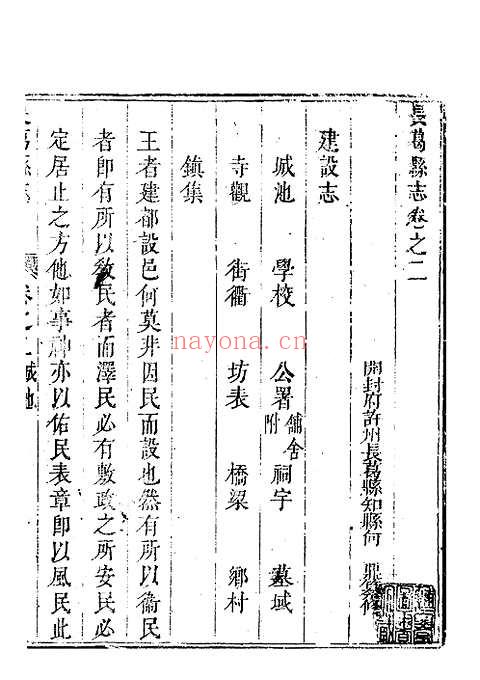 長葛縣志卷之二
開封府許州長葛縣知縣何鼎
建設志
城池 學校 公署 舖舍附 祠宇 墓域
寺觀 街衢 坊表 橋梁 鄉村
鎮集
王者建都設邑何莫非因民而設也然有所以衞民
者卽有所以敎民者而澤民必有敷政之所安民必
定居止之方他如事神亦以佑民表章卽以風民此
卷之二 城池
nayona.cn